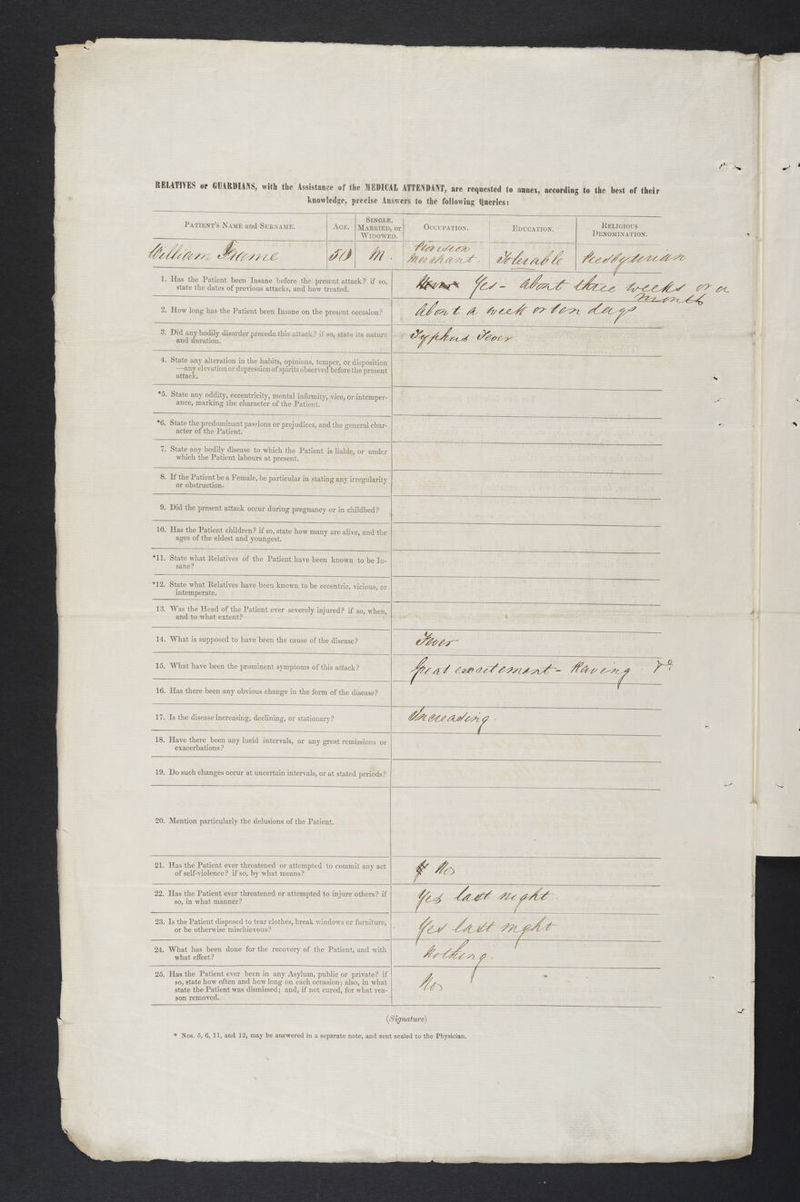 RELATIVES or GUARDIANS, with the Assistance of the MEDICAL ATTENDANT, are requested to annex, according to the best of their
knowledge, precise Answers to the following Queries:
PATIENT'S NAME and SURNAME. AGE. SINGLE, MARRIED, or WIDOWED. OCCUPATION. EDUCATION. RELIGIOUS DENOMINATION.
William Frame 50 M. Provision Merchant. Tolerable Presbyterian
1. Has the Patient been Insane before the present attack? if so,
state the dates of previous attacks, and how treated.
Yes - about three weeks or a
month
2. How long has the Patient been Insane on the present occasion?
About a week or ten days
3. Did any bodily disorder precede this attack? if so, state its nature
and duration.
Typhus Fever
4. State any alteration in the habits, opinions, temper, or disposition
—any elevation or depression of spirits observed before the present
attack.
*5. State any oddity, eccentricity, mental infirmity, vice, or intemper-
ance, marking the character of the Patient.
*6. State the predominant passions or prejudices, and the general char-
acter of the Patient.
7. State any bodily disease to which the Patient is liable, or under
which the Patient labours at present.
8. If the Patient be a Female, be particular in stating any irregularity
or obstruction.
9. Did the present attack occur during pregnancy or in childbed?
10. Has the Patient children? if so, state how many are alive, and the
ages of the eldest and youngest.
*11. State what Relatives of the Patient have been known to be In-
sane?
*12. State what Relatives have been known to be eccentric, vicious, or
intemperate.
13. Was the Head of the Patient ever severely injured? if so, when,
and to what extent?
14. What is supposed to have been the cause of the disease?
Fever
15. What have been the prominent symptoms of this attack?
Great excitement - Raving &c
16. Has there been any obvious change in the form of the disease?
17. Is the disease increasing, declining, or stationary?
Increasing.
18. Have there been any lucid intervals, or any great remissions or
exacerbations?
19. Do such changes occur at uncertain intervals, or at stated periods?
20. Mention particularly the delusions of the Patient.
21. Has the Patient ever threatened or attempted to commit any act
of self-violence? if so, by what means?
No
22. Has the Patient ever threatened or attempted to injure others? if
so, in what manner?
Yes last night
23. Is the Patient disposed to tear clothes, break windows or furniture,
or be otherwise mischievous?
Yes last night
24. What has been done for the recovery of the Patient, and with
what effect?
Nothing.
25. Has the Patient ever been in any Asylum, public or private? if
so, state how often and how long on each occasion; also, in what
state the Patient was dismissed; and, if not cured, for what rea-
son removed.
No
(Signature)
* Nos. 5, 6, 11, and 12, may be answered in a separate note, and sent sealed to the Physician.